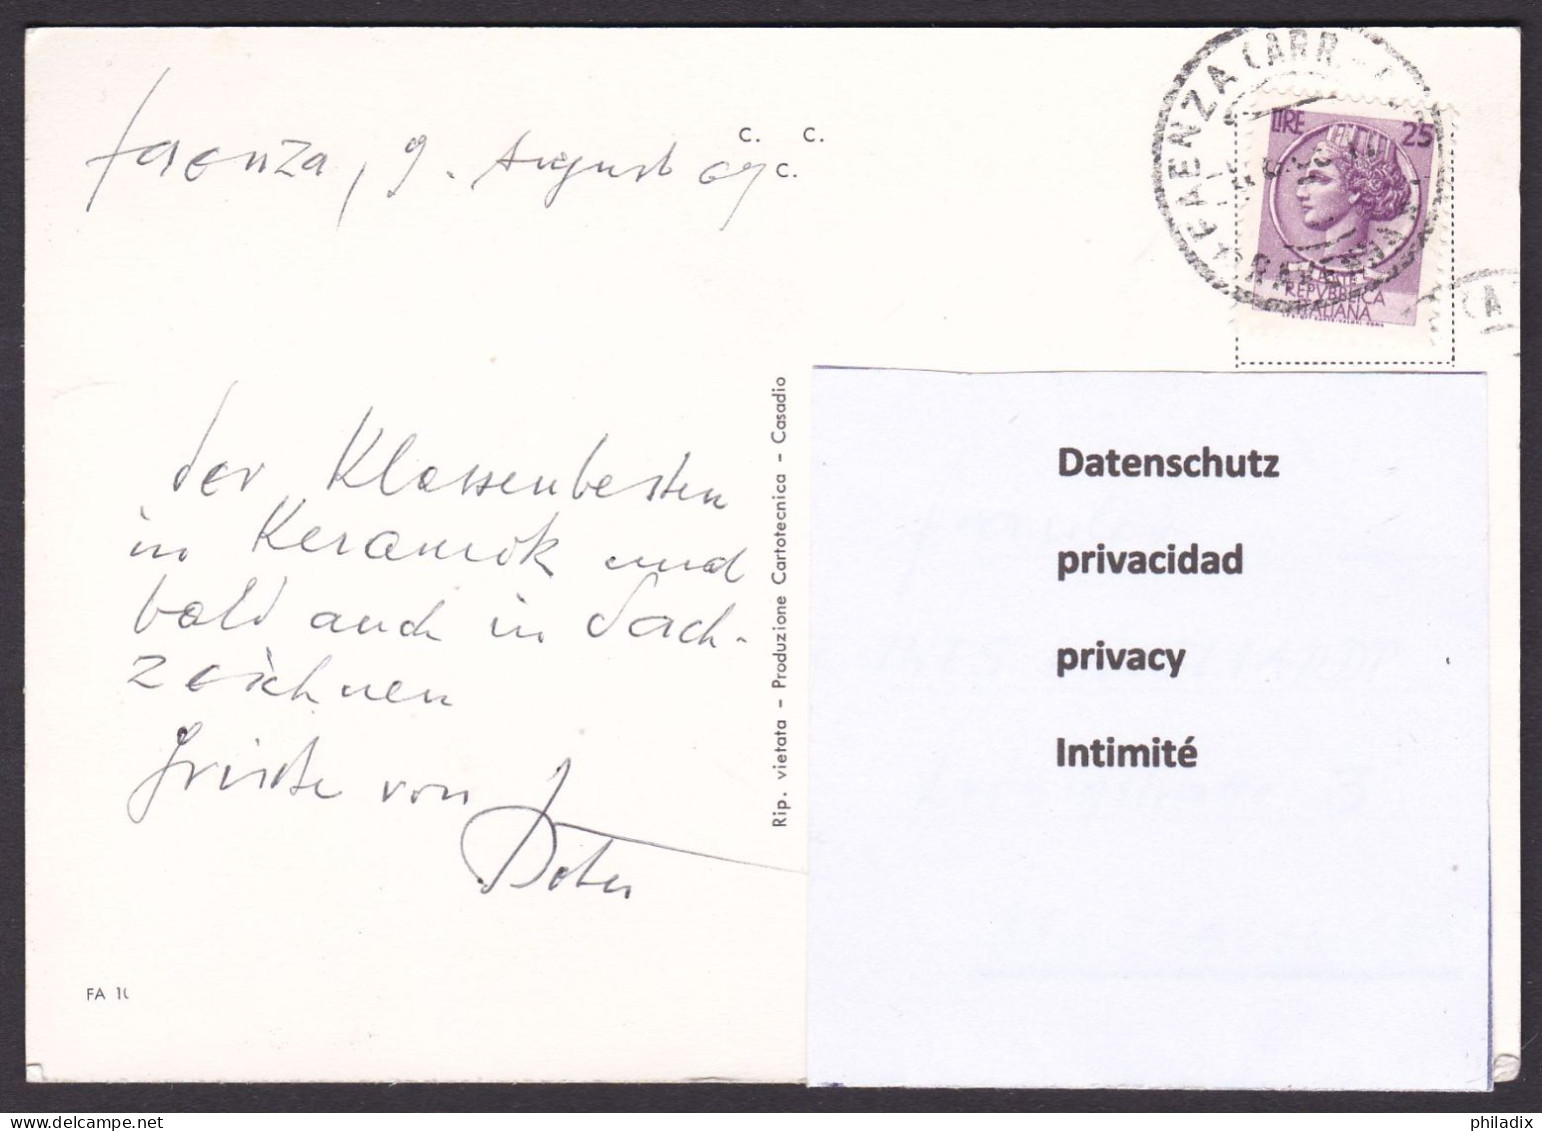 Faenza, 9. August 69
C. C.
C.
FAENZA (ARR.
LIRE 25
REPVBBLICA
ITALIANA
der Klassenbesten
in Keramik und
bald auch in Sach-
zeichnen
Grüße von
Rip. vietata - Produzione Cartotecnica - Casadio
FA 10
Datenschutz
privacidad
privacy
Intimité
philadix